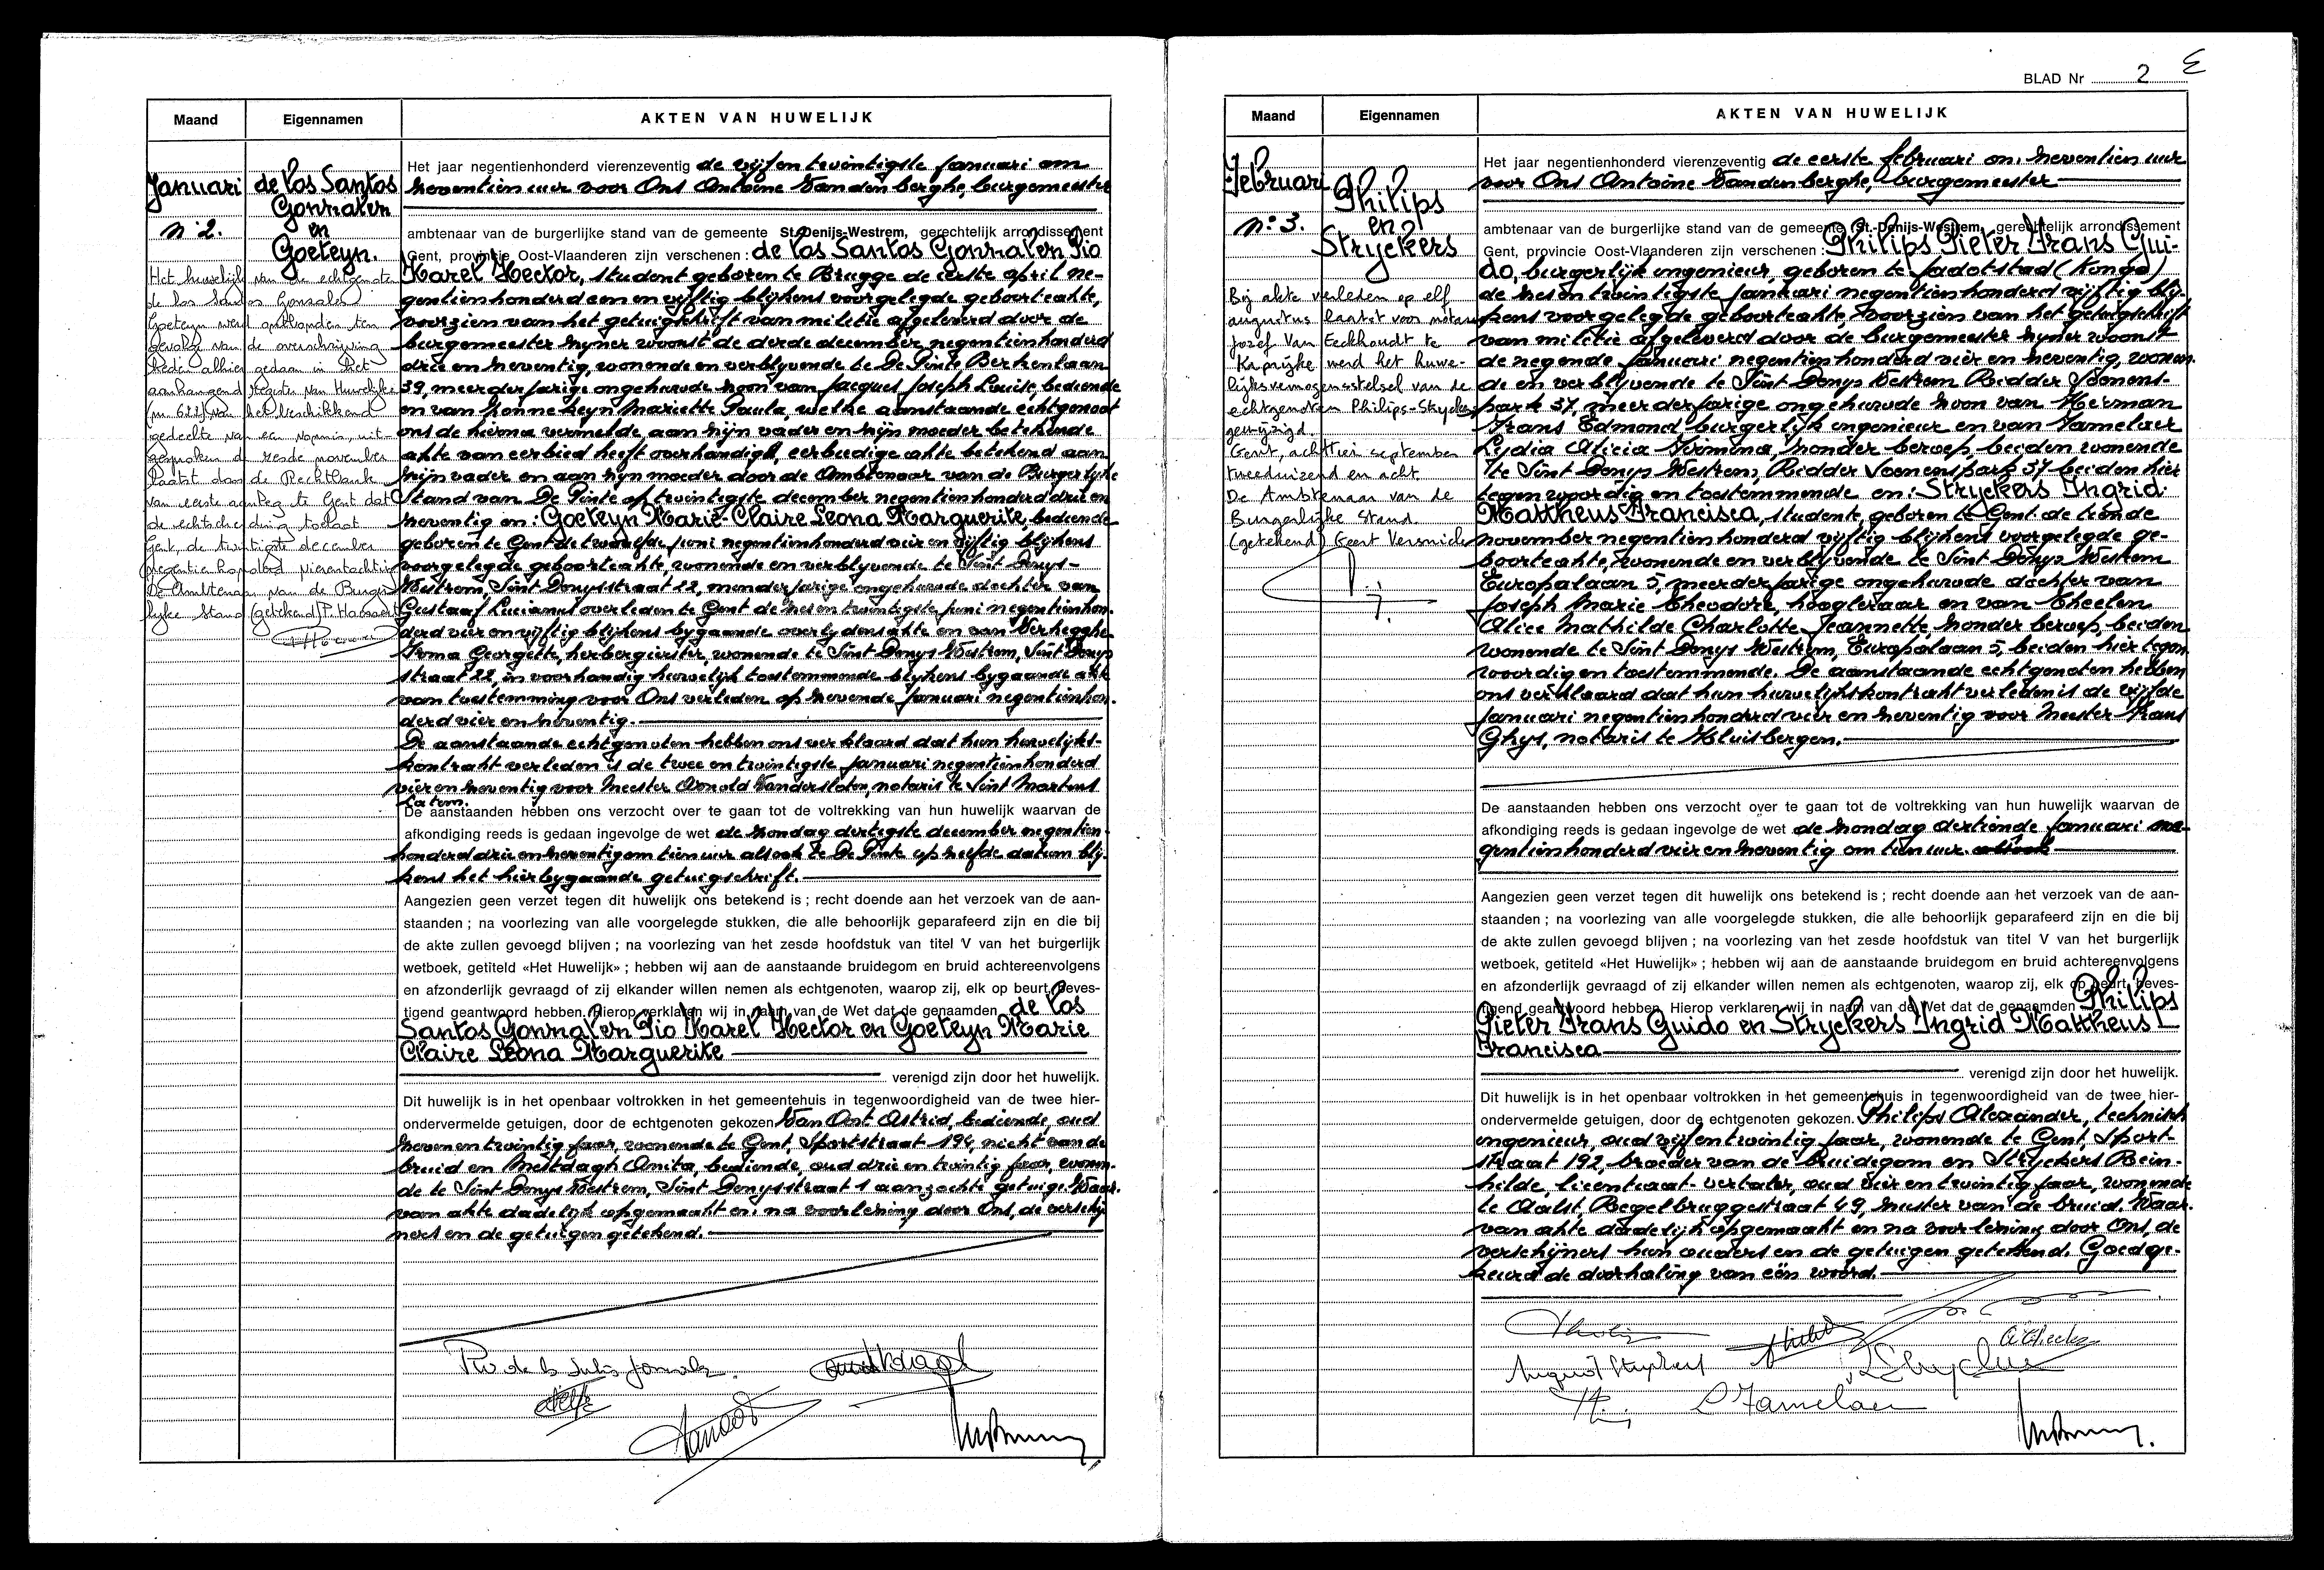 Maand
Eigennamen
AKTEN VAN HUWELIJK
Januari
n° 2.
de los Santos
Gonzalez
en
Goeteyn.
Het huwelijk van de echtgenoten
de los Santos Gonzalez
Goeteyn werd ontbonden ten
gevolge van de overschrijving
heden alhier gedaan in het
aanhangend register van Huwelijken
(nr 622) van het beschikkend
gedeelte van een vonnis, uit-
gesproken de zesde november
laatst door de Rechtbank
van eerste aanleg te Gent dat
de echtscheiding toelaat
Gent, de twintigste december
negentienhonderd vierentachtig
De Ambtenaar van de Burger-
lijke Stand (getekend)
Het jaar negentienhonderd vierenzeventig de vijfentwintigste januari om
zeventien uur voor Ons Antoine Vandenberghe, burgemeester
ambtenaar van de burgerlijke stand van de gemeente St.-Denijs-Westrem, gerechtelijk arrondissement
Gent, provincie Oost-Vlaanderen zijn verschenen : de los Santos Gonzalez Pio
Karel Hector, student geboren te Brugge de eerste april ne-
gentienhonderd een en vijftig blijkens voorgelegde geboorteakte,
voorzien van het getuigschrift van militie afgeleverd door de
burgemeester zijner woonst de derde december negentienhonderd
drie en zeventig, wonende en verblijvende te De Pinte Berkenlaan
39, meerderjarige ongehuwde zoon van Jacques Joseph Louise, bediende
en van Mariette Paula welke aanstaande echtgenoot
ons de hierna vermelde, aan zijn vader en zijn moeder betekende
akte van eerbied heeft overhandigd, eerbiedige akte betekend aan
zijn vader en aan zijn moeder door de Ambtenaar van de Burgerlijke
Stand van De Pinte op twintigste december negentienhonderd drie en
zeventig en : Goeteyn Marie-Claire Leona Marguerite, bediende
geboren te Gent de twaalfde juni negentienhonderd vier en vijftig blijkens
voorgelegde geboorteakte, wonende en verblijvende te Sint Denys-
Westrem, Sint Denysstraat 22, minderjarige ongehuwde dochter van
Gustaaf Lucianus overleden te Gent de zesentwintigste juni negentienhon-
derd vier en vijftig blijkens bygaande overlydensakte en van Verhegghe
Irma Georgette, herbergierster, wonende te Sint Denys Westrem, Sint Denys
straat 22, in voorhandig huwelijk toestemmende blijkens bygaande akte
van toestemming voor Ons verleden op zevende januari negentienhon-
derd vier en zeventig.
De aanstaande echtgenoten hebben ons verklaard dat hun huwelijks-
kontrakt verleden is de twee en twintigste januari negentienhonderd
vier en zeventig voor Meester Arnold Vanderstaeten, notaris te Sint Martens
Latem.
De aanstaanden hebben ons verzocht over te gaan tot de voltrekking van hun huwelijk waarvan de
afkondiging reeds is gedaan ingevolge de wet de zondag dertigste december negentien-
honderd drie en zeventig om tien uur alsook te De Pinte op zelfde datum blij-
kens het hierbygaande getuigschrift.
Aangezien geen verzet tegen dit huwelijk ons betekend is ; recht doende aan het verzoek van de aan-
staanden ; na voorlezing van alle voorgelegde stukken, die alle behoorlijk geparafeerd zijn en die bij
de akte zullen gevoegd blijven ; na voorlezing van het zesde hoofdstuk van titel V van het burgerlijk
wetboek, getiteld «Het Huwelijk» ; hebben wij aan de aanstaande bruidegom en bruid achtereenvolgens
en afzonderlijk gevraagd of zij elkander willen nemen als echtgenoten, waarop zij, elk op beurt, beves-
tigend geantwoord hebben. Hierop verklaren wij in naam van de Wet dat de genaamden de los
Santos Gonzalez Pio Karel Hector en Goeteyn Marie
Claire Leona Marguerite
verenigd zijn door het huwelijk.
Dit huwelijk is in het openbaar voltrokken in het gemeentehuis in tegenwoordigheid van de twee hier-
ondervermelde getuigen, door de echtgenoten gekozen Van Oost Astrid, bediende, oud
zevenentwintig jaar, wonende te Gent, Sportstraat 194, nicht van de
bruid en Mestdagh Anita, bediende, oud drie en twintig jaar, wonen-
de te Sint Denys Westrem, Sint Denysstraat 1 aangezochte getuige. Waar-
van akte dadelijk opgemaakt en na voorlezing door Ons, de verschij-
ners en de getuigen getekend.
BLAD Nr 2
Maand
Eigennamen
AKTEN VAN HUWELIJK
Februari
n° 3.
Philips
en
Stryckers
Bij akte verleden op elf
augustus laatst voor notaris
Jozef Van Eeckhoudt te
Kaprijke werd het huwe-
lijksvermogensstelsel van de
echtgenoten Philips-Stryckers
gewijzigd.
Gent, achttien september
tweeduizend en acht.
De Ambtenaar van de
Burgerlijke Stand.
(getekend) Geert Versnick
Het jaar negentienhonderd vierenzeventig de eerste februari om zeventien uur
voor Ons Antoine Vandenberghe, burgemeester
ambtenaar van de burgerlijke stand van de gemeente St.-Denijs-Westrem, gerechtelijk arrondissement
Gent, provincie Oost-Vlaanderen zijn verschenen : Philips Pieter Frans Gui-
do, burgerlijk ingenieur, geboren te Jadotstad (Kongo)
de zesentwintigste januari negentienhonderd vijftig blij-
kens voorgelegde geboorteakte, voorzien van het getuigschrift
van militie afgeleverd door de burgemeester zijner woonst
de negende januari negentienhonderd vier en zeventig, wonen-
de en verblijvende te Sint Denys Westrem Ridder Soenens-
park 37, meerderjarige ongehuwde zoon van Herman
Frans Edmond burgerlijk ingenieur en van Jamelaer
Lydia Alicia Firmina, zonder beroep, beiden wonende
te Sint Denys Westrem, Ridder Soenenspark 37 beiden hier
tegenwoordig en toestemmende en : Stryckers Ingrid
Mattheus Francisca, studente, geboren te Gent de tiende
november negentienhonderd vijftig blijkens voorgelegde ge-
boorteakte, wonende en verblijvende te Sint Denys Westrem
Europalaan 5, meerderjarige ongehuwde dochter van
Joseph Marie Theodore, hoogleraar en van Theelen
Alice Mathilde Charlotte Jeannette zonder beroep, beiden
wonende te Sint Denys Westrem, Europalaan 5, beiden hier tegen-
woordig en toestemmende. De aanstaande echtgenoten hebben
ons verklaard dat hun huwelijkskontrakt verleden is de vijfde
januari negentienhonderd vier en zeventig voor Meester Frans
Ghys, notaris te Kluisbergen.
De aanstaanden hebben ons verzocht over te gaan tot de voltrekking van hun huwelijk waarvan de
afkondiging reeds is gedaan ingevolge de wet de zondag dertiende januari ne-
gentienhonderd vier en zeventig om tien uur. alsook
Aangezien geen verzet tegen dit huwelijk ons betekend is ; recht doende aan het verzoek van de aan-
staanden ; na voorlezing van alle voorgelegde stukken, die alle behoorlijk geparafeerd zijn en die bij
de akte zullen gevoegd blijven ; na voorlezing van het zesde hoofdstuk van titel V van het burgerlijk
wetboek, getiteld «Het Huwelijk» ; hebben wij aan de aanstaande bruidegom en bruid achtereenvolgens
en afzonderlijk gevraagd of zij elkander willen nemen als echtgenoten, waarop zij, elk op beurt, beves-
tigend geantwoord hebben. Hierop verklaren wij in naam van de Wet dat de genaamden Philips
Pieter Frans Guido en Stryckers Ingrid Mattheus
Francisca
verenigd zijn door het huwelijk.
Dit huwelijk is in het openbaar voltrokken in het gemeentehuis in tegenwoordigheid van de twee hier-
ondervermelde getuigen, door de echtgenoten gekozen. Philips Alexander, technisch
ingenieur, oud vijfentwintig jaar, wonende te Gent, Sport-
straat 192, broeder van de bruidegom en Stryckers Rein-
hilde, licentiaat-vertaler, oud vier en twintig jaar, wonende
te Aalst, Regelbruggestraat 49, zuster van de bruid. Waar-
van akte dadelijk opgemaakt en na voorlezing door Ons, de
verschijners hun ouders en de getuigen getekend. Goedge-
keurd de doorhaling van één woord.